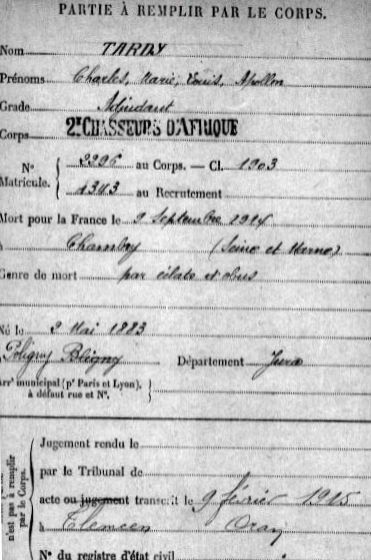 PARTIE À REMPLIR PAR LE CORPS.
Nom TARDY
Prénoms Charles, Marie, Louis, Apollon
Grade Adjudant
Corps 2e CHASSEURS D'AFRIQUE
N° 3396 au Corps. — Cl. 1903
Matricule. 1343 au Recrutement
Mort pour la France le 9 Septembre 1914
à Chambry (Seine et Marne)
Genre de mort par éclats d'obus
Né le 2 Mai 1883
Poligny Département Jura
Arrt municipal (pr Paris et Lyon),
à défaut rue et N°.
Jugement rendu le
par le Tribunal de
acte ou jugement transcrit le 9 février 1915
à Tlemcen Oran
N° du registre d'état civil
n'est pas à remplir
par le Corps.